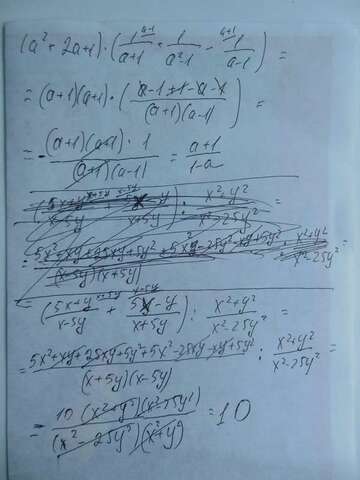 (a² + 2a+1) · (1/(a+1) + 1/(a²-1) - 1/(a-1)) =
= (a+1)(a+1) · ((a-1+1-a-1)/((a+1)(a-1))) =
= -((a+1)(a+1) · 1)/((a+1)(a-1)) = (a+1)/(1-a)
= ((5x+y)/(x-5y) + (5x-y)/(x+5y)) : (x²+y²)/(x²-25y²) =
= (5x²+xy+25xy+5y²+5x²-25xy-xy+5y²)/((x+5y)(x-5y)) : (x²+y²)/(x²-25y²) =
= (10(x²+y²)(x²-25y²))/((x²-25y²)(x²+y²)) = 10